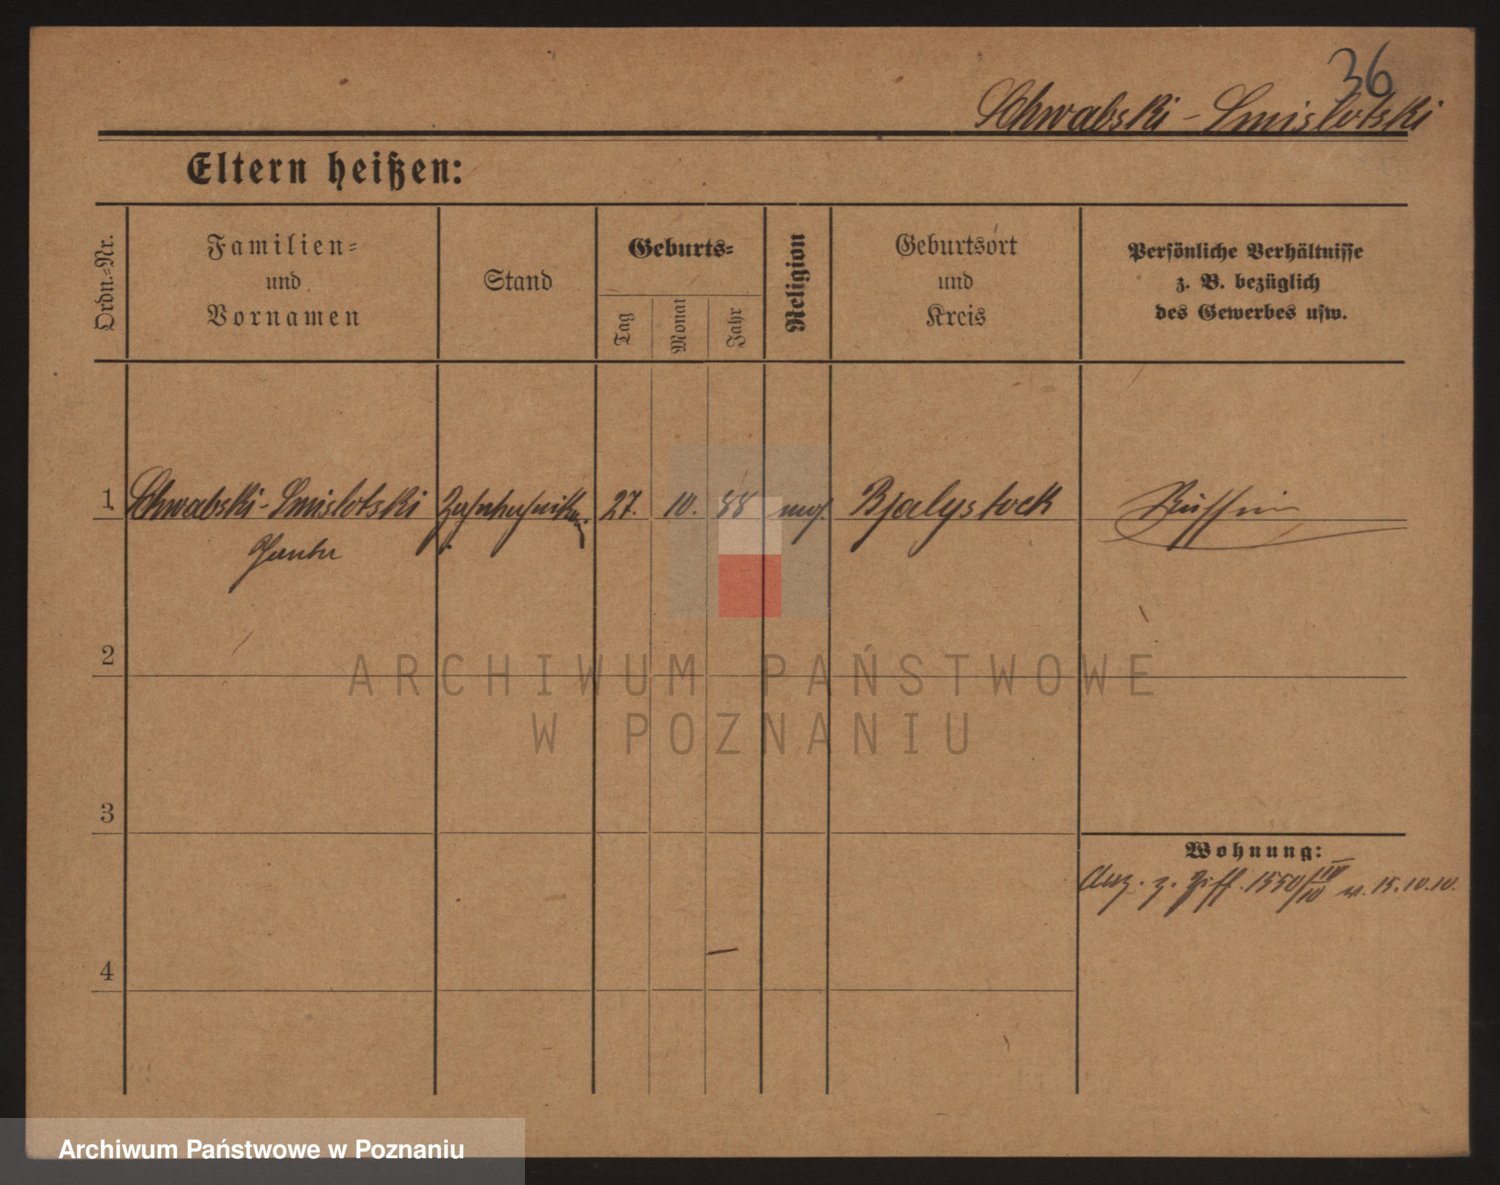 36
Schwabski-Smislotski
Eltern heißen:
Ordn.-Nr.
Familien-
und
Vornamen
Stand
Geburts-
Tag
Monat
Jahr
Religion
Geburtsort
und
Kreis
Persönliche Verhältnisse
z. B. bezüglich
des Gewerbes usw.
1 Schwabski-Smislotski 27. 10. 88 mos. Bjalystock
2
3
Wohnung:
Anz. z. Ziff. 1550 15.10.10.
4
ARCHIWUM PAŃSTWOWE
W POZNANIU
Archiwum Państwowe w Poznaniu